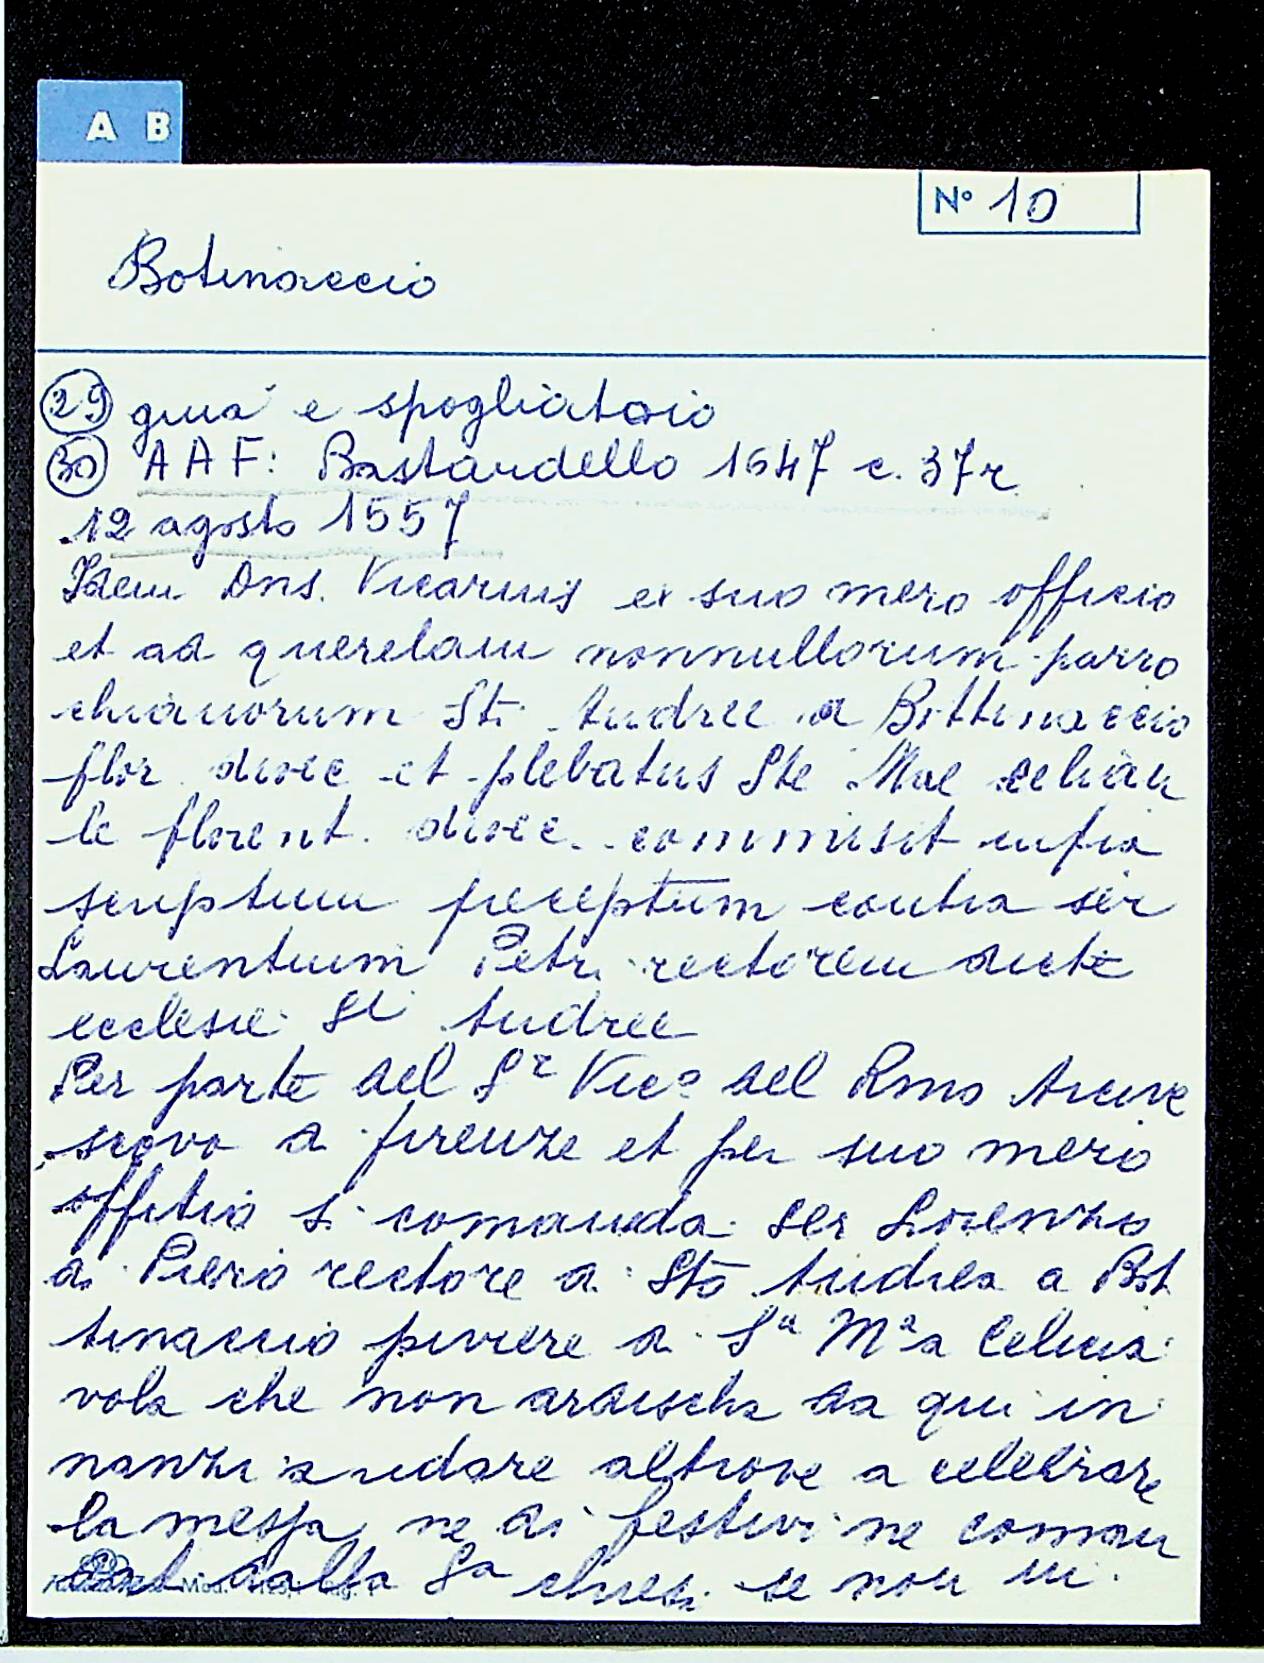 A B
N° 10
Botinaccio
29 gua' e spogliatoio
30 AAF: Bastardello 1647 c. 37r
12 agosto 1557
Idem Dns. Vicarius ex suo mero officio
et ad querelam nonnullorum parro
chianorum Sti Andree a Bottinaccio
flor. dioec et plebatus Ste Mae celiau
le florent. dioec. commisit infra
scriptum preceptum contra ser
Laurentium Petri rectorem dicte
ecclesie Si Andree
Per parte del Sr Vico del Rmo Arcive
scovo di firenze et per suo mero
offitio si comanda ser Lorenzo
di Piero rectore di Sto Andrea a Bot
tinaccio piviere di Sa Ma a Celicia
vola che non ardischa da qui in
nanzi andare altrove a celebrare
la messa ne di festivi ne coman
dalla Sa chiesa se non in